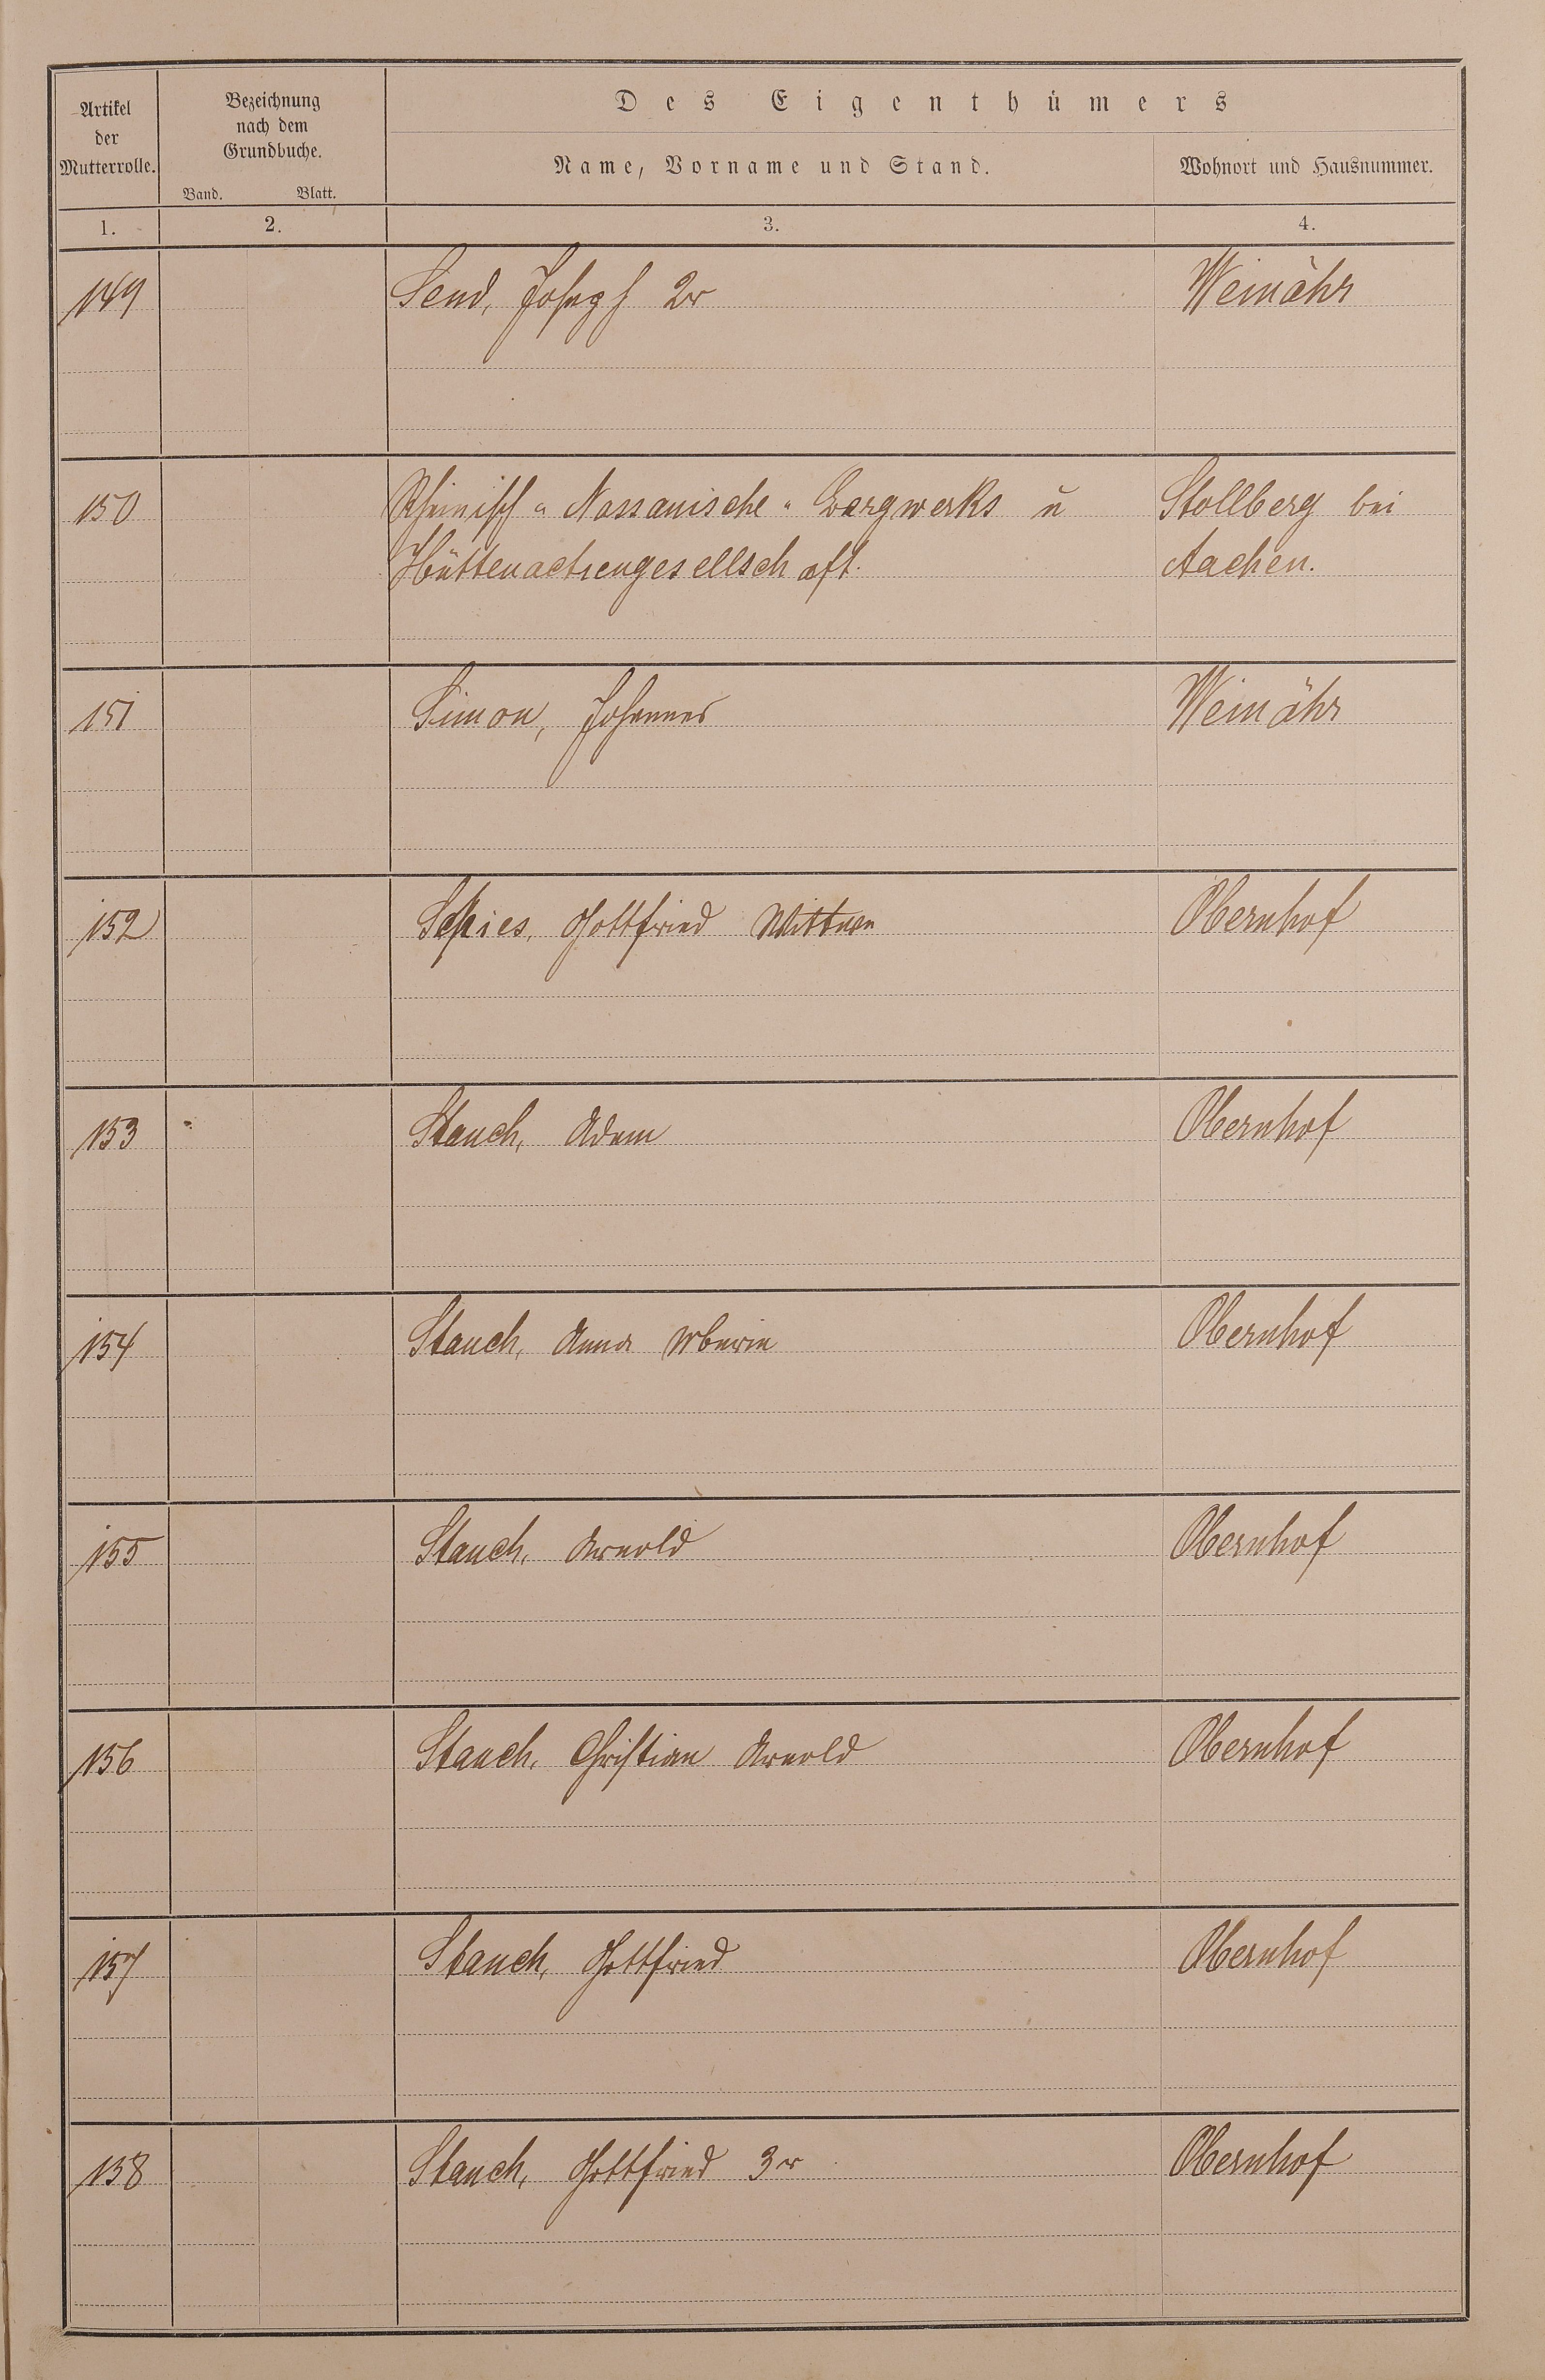 Artikel der Mutterrolle.
Bezeichnung nach dem Grundbuche.
Band. Blatt.
Des Eigenthümers
Name, Vorname und Stand.
Wohnort und Hausnummer.
1. 2. 3. 4.
149 Send, Joseph 2r Weinähr
150 Rheinisch "Nassauische" Bergwerks u Stollberg bei
Hüttenactiengesellschaft. Aachen.
151 Simon, Johannes Weinähr
152 Gottfried Wittwe Obernhof
153 Stauch, Adam Obernhof
154 Stauch, Anna Obernhof
155 Stauch, Arnold Obernhof
156 Stauch, Christian Arnold Obernhof
157 Stauch, Gottfried Obernhof
158 Stauch, Gottfried 3r Obernhof